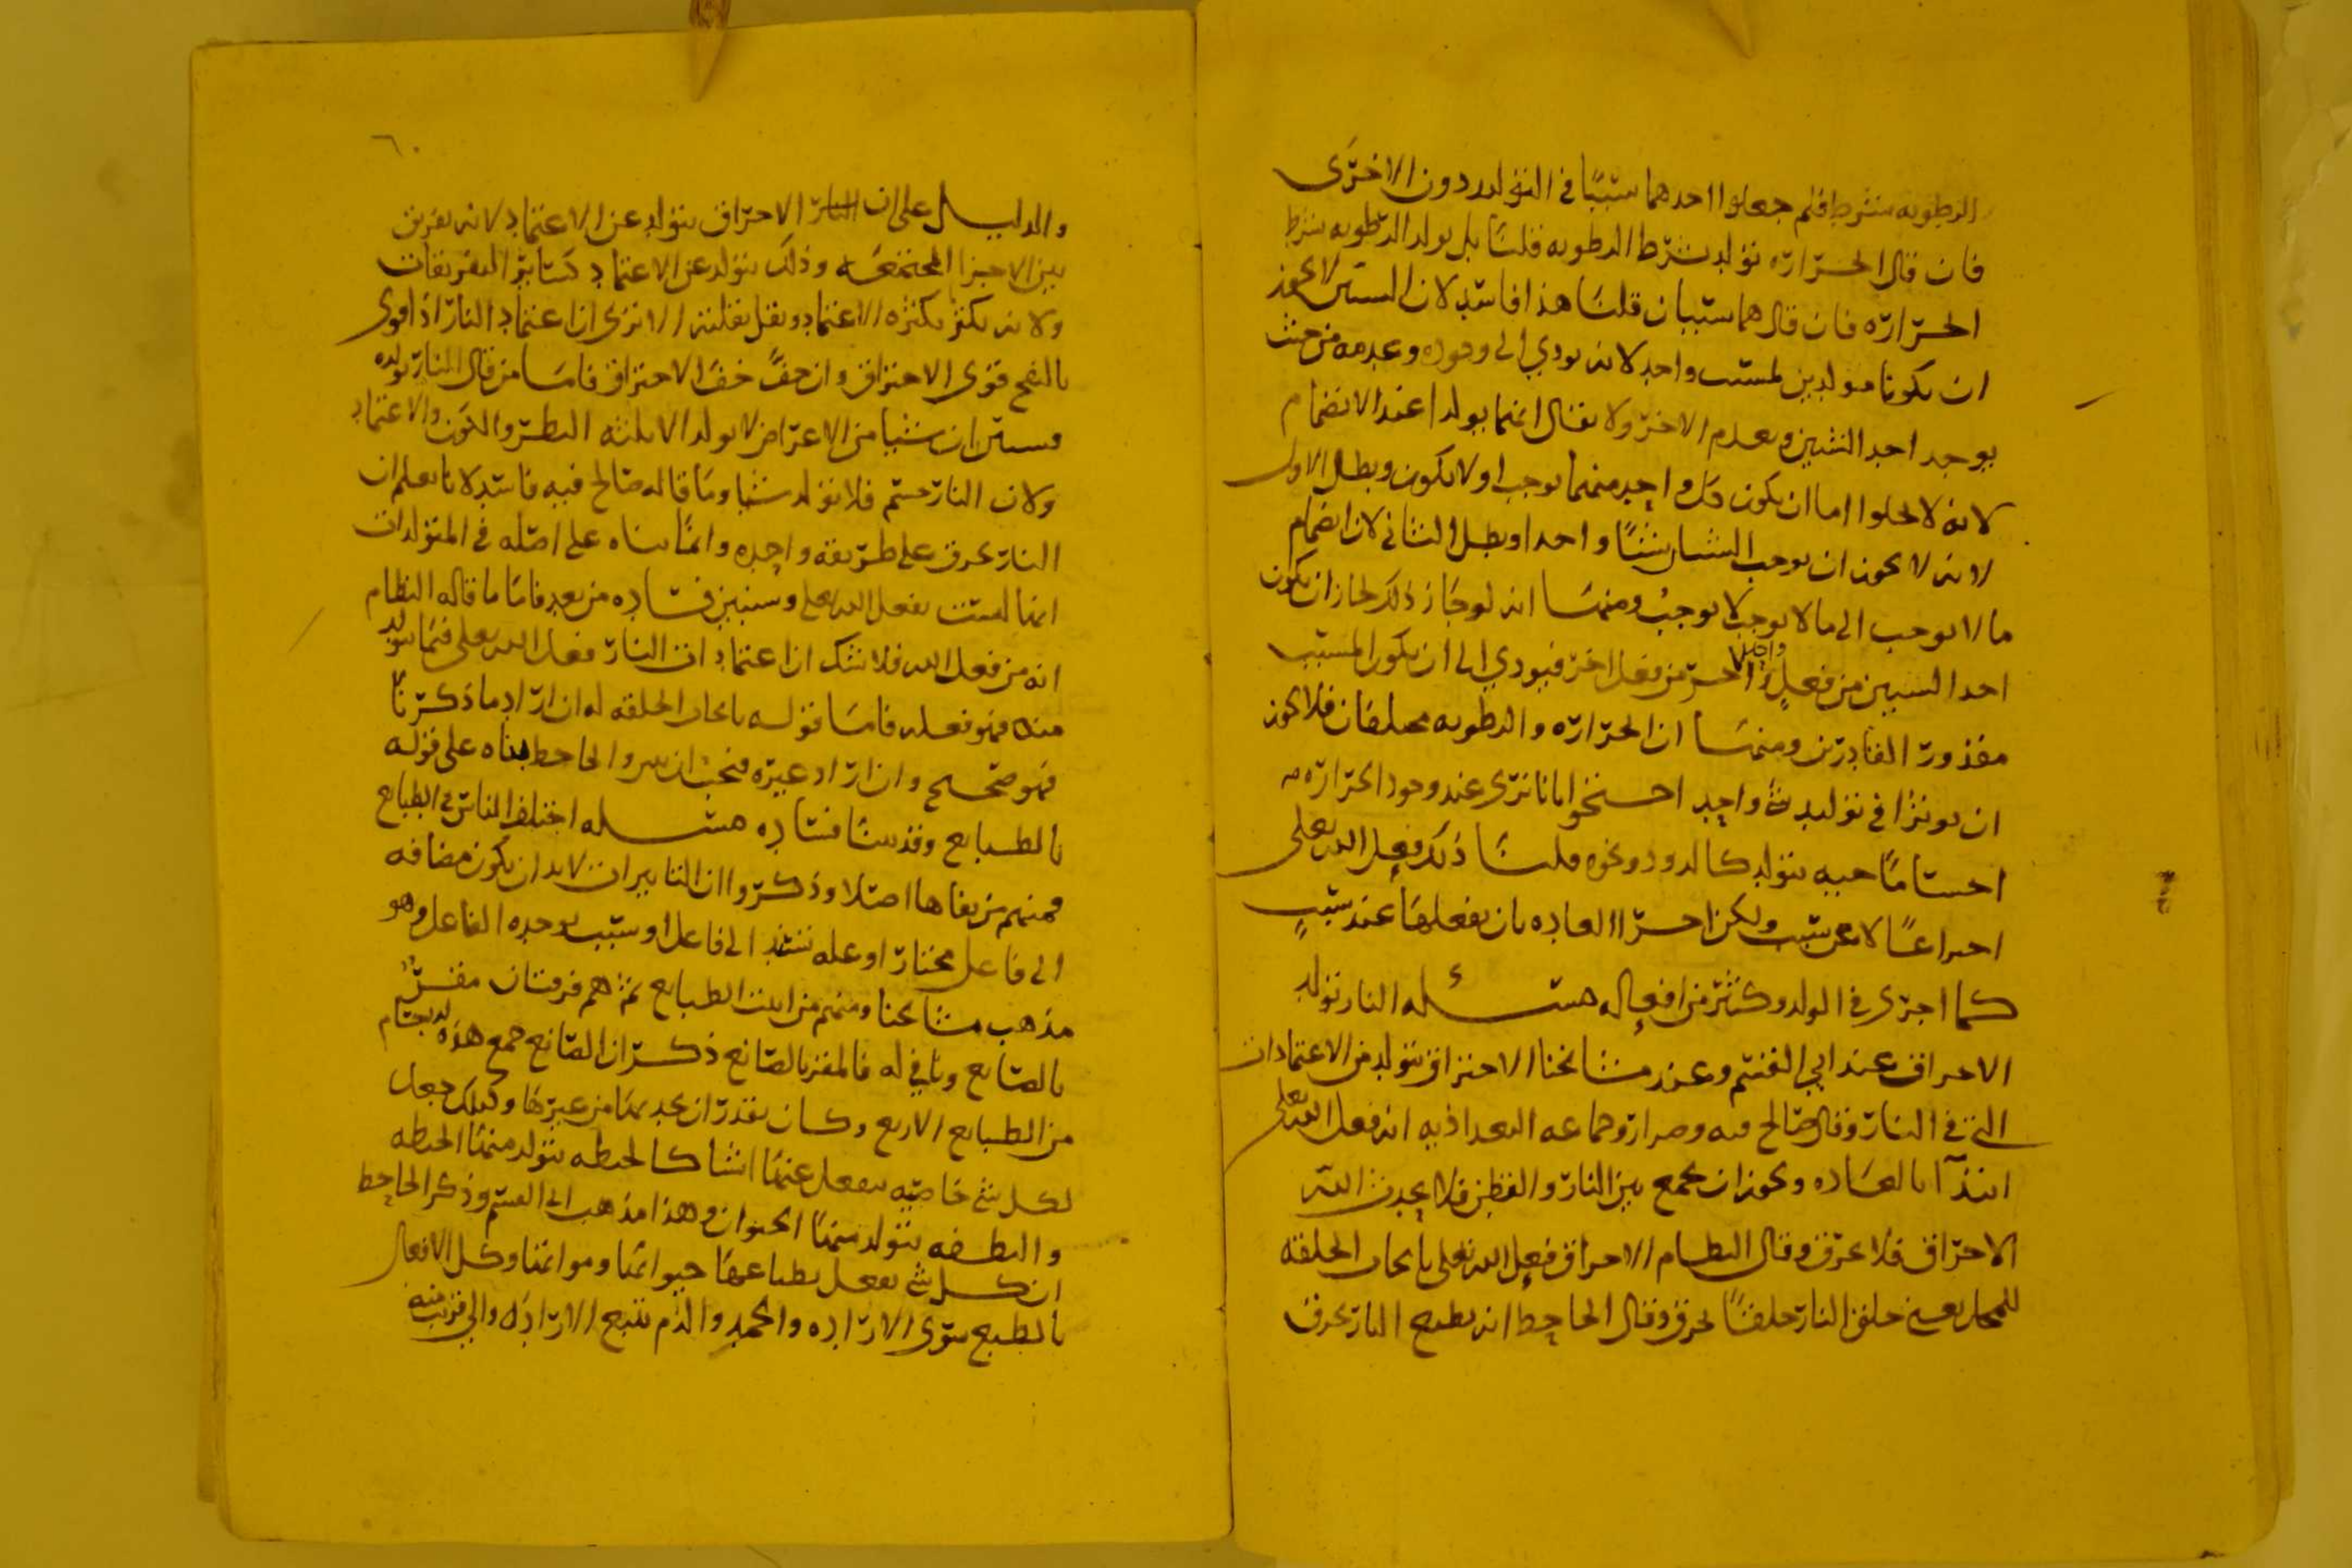 الرطوبه بشرط فلم جعلوا احدهما سببًا في التولد دون الاخرى
فان قال الحرارة تولد بشرط الرطوبه قلنا بل تولد الرطوبه بشرط
الحرارة فان قال هما سببان قلنا هذا فاسد لان السببين لا يجوز
ان يكونا مولدين لمسبب واحد لانه يودي الى وجوده وعدمه من حيث
يوجد احد السببين ويعدم الاخر ولا يقال انهما يولدا عند الانضمام
لانه لا يخلوا اما ان يكون كل واحد منهما يوجب او لا يكون وبطل الاول
لانه لا يجوز ان يوجب الشيئان شيئًا واحدا وبطل الثاني لان انضمام
ما لا يوجب الى ما لا يوجب لا يوجب ومنها انه لو جاز ذلك لجاز ان يكون
احد السببين من فعل واحد والاخر من فعل اخر فيودي الى ان يكون المسبب
مقدور القادرين ومنها ان الحرارة والرطوبه مختلفان فلا يجوز
ان يوثرا في توليد شي واحد احتجوا بانا نرى عند وجود الحرارة
اجساما حيه تتولد كالدود ونحوه قلنا ذلك فعل الله تعلى
اختراعًا لا عن سبب ولكن اجرا العاده بان يفعلها عند سبب
كما اجرى في الولد وكثير من افعاله مسئله النار تولد
الاحراق عند ابي القسم وعند مشائخنا الاحتراق يتولد من الاعتمادات
التي في النار وقال صالح قبه وضرار وجماعه البغداذيه انه فعل الله تعلى
ابتدآ بالعاده ويجوز ان يجمع بين النار والقطن فلا يحدث الله
الاحتراق فلا يحرق وقال النظام الاحراق فعل الله تعلى بايجاب الخلقه
للمحل يعني خلق النار خلقًا تحرق وقال الجاحظ انه بطبع النار تحرق
٦٠
والدليل على ان الاحتراق يتولد عن الاعتماد لانه تفريق
بين الاجزا المجتمعه وذلك يتولد عن الاعتماد كسائر التفريقات
ولانه يكثر بكثره الاعتماد ويقل بقلته الا ترى ان اعتماد النار اذا قوى
بالنفخ قوى الاحتراق وان خف خف الاحتراق فاما من قال النار تولده
فسنبين ان شيا من الاعراض لا يولد الا ثلثه النظر والكون والاعتماد
ولان النار جسم فلا تولد شيا وما قاله صالح قبه فاسد لانا نعلم ان
النار تحرق على طريقه واحده وانما بناه على اصله في المتولدات
انها ليست بفعل العبد وسنبين فساده من بعد فاما ما قاله النظام
انه من فعل الله فلا شك ان اعتمادات النار فعل الله تعلى فما تولد
منه فهو فعله فاما قوله بايجاب الخلقه له ان اراد ما ذكرنا
فهو صحيح وان اراد غيره فيجب ان يبين والجاحظ بناه على قوله
بالطبايع وقد بينا فساده مسئله اختلف الناس في الطبايع
فمنهم من نفاها اصلا وذكروا ان التاثيرات لا بد ان تكون مضافه
الى فاعل مختار او عله تستند الى فاعل او سبب يوجده الفاعل وهو
مذهب مشائخنا ومنهم من اثبت الطبايع ثم هم فرقتان مقر
بالصانع ونافي له فالمقر بالصانع ذكر ان الصانع جمع هذه الاجسام
من الطبايع الاربع وكان يقدر ان يجمعها من غيرها وكذلك جعل
لكل شي خاصيه يفعل عنها اشيا كالحنطه يتولد منها الحنطه
والنطفه يتولد منها الحيوان وهذا مذهب ابي القسم وذكر الجاحظ
ان كل شي يفعل بطباعها حيواتها ومواتها وكل الافعال
بالطبع سوى الاراده والحمد والذم يتبع الاراده والى قريب منه